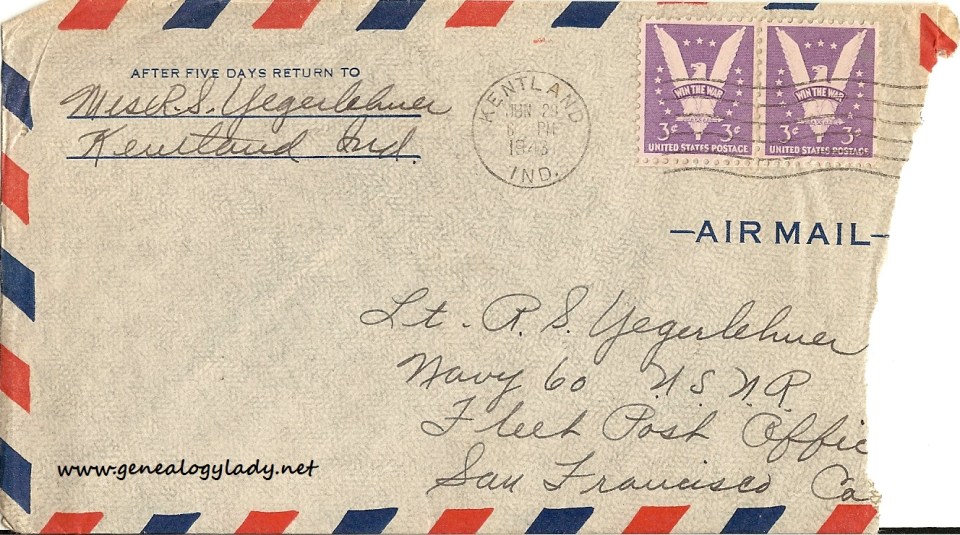 AFTER FIVE DAYS RETURN TO
Mrs R. S. Yegerlehner
Kentland Ind.
KENTLAND
JUN 29
PM
1943
IND.
WIN THE WAR
3¢ 3¢
UNITED STATES POSTAGE
WIN THE WAR
3¢ 3¢
UNITED STATES POSTAGE
—AIR MAIL—
Lt. R. S. Yegerlehner
Navy 60 U.S.N.R.
Fleet Post Offic
San Francisco Ca
www.genealogylady.net